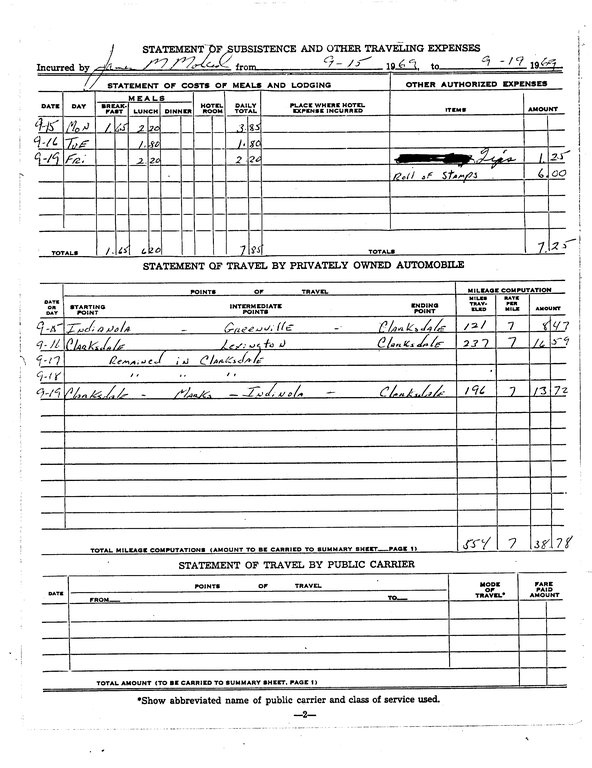 STATEMENT OF SUBSISTENCE AND OTHER TRAVELING EXPENSES
Incurred by James M from 9-15 1969 to 9-19 1969
STATEMENT OF COSTS OF MEALS AND LODGING OTHER AUTHORIZED EXPENSES
MEALS
DATE DAY BREAK-FAST LUNCH DINNER HOTEL ROOM DAILY TOTAL PLACE WHERE HOTEL EXPENSE INCURRED ITEMS AMOUNT
9-15 MON 1.65 2 20 3.85
9-16 TUE 1.80 1.80
9-19 FRI. 2 20 2 20 Tips 1.25
Roll of Stamps 6.00
TOTALS 1.65 6 20 7 85 TOTALS 7 25
STATEMENT OF TRAVEL BY PRIVATELY OWNED AUTOMOBILE
POINTS OF TRAVEL MILEAGE COMPUTATION
DATE OR DAY STARTING POINT INTERMEDIATE POINTS ENDING POINT MILES TRAV-ELED RATE PER MILE AMOUNT
9-15 Indianola - Greenville - Clarksdale 121 7 8 47
9-16 Clarksdale Lexington Clarksdale 237 7 16 59
9-17 Remained in Clarksdale
9-18 " " "
9-19 Clarksdale - Marks - Indianola - Clarksdale 196 7 13 72
TOTAL MILEAGE COMPUTATIONS (AMOUNT TO BE CARRIED TO SUMMARY SHEET—PAGE 1) 554 7 38 78
STATEMENT OF TRAVEL BY PUBLIC CARRIER
DATE POINTS OF TRAVEL MODE OF TRAVEL* FARE PAID AMOUNT
FROM— TO—
TOTAL AMOUNT (TO BE CARRIED TO SUMMARY SHEET, PAGE 1)
*Show abbreviated name of public carrier and class of service used.
—2—